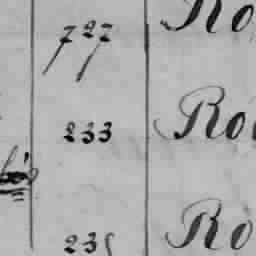 727 Ro
233 Ro
235 Ro